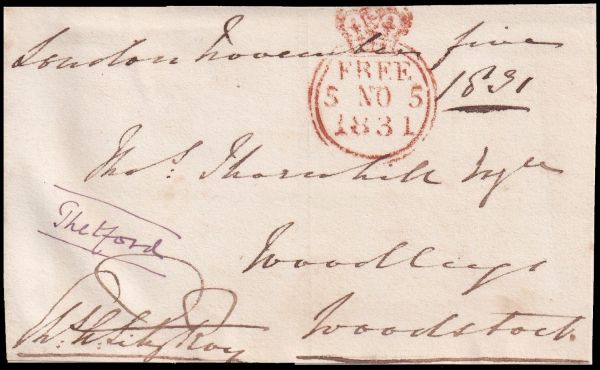 London November five
1831
FREE
5 NO 5
1831
Thos. Thornhill Esqre
Woodleys
Thetford
Woodstock.
FitzRoy